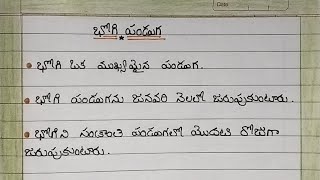 Date
భోగి పండుగ
• భోగి ఒక ముఖ్యమైన పండుగ.
• భోగి పండుగను జనవరి నెలలో జరుపుకుంటారు.
• భోగిని సంక్రాంతి పండుగలో మొదటి రోజుగా
జరుపుకుంటారు.